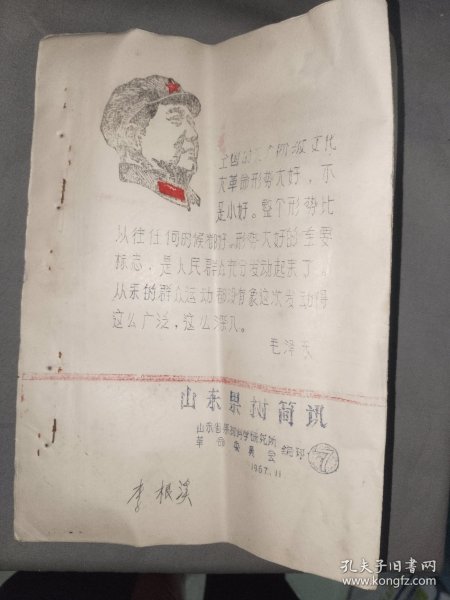 全国的无产阶级文化
大革命形势大好，不
是小好。整个形势比
以往任何的候都好。形势大好的重要
标志，是人民群众充分发动起来了，
从来的群众运动都没有象这次发动得
这么广泛，这么深入。
毛泽东
山东果树简讯
山东省果树科学研究所
革命委员会 编印
7
1967.11
李根溪
孔夫子旧书网
www.kongfz.com